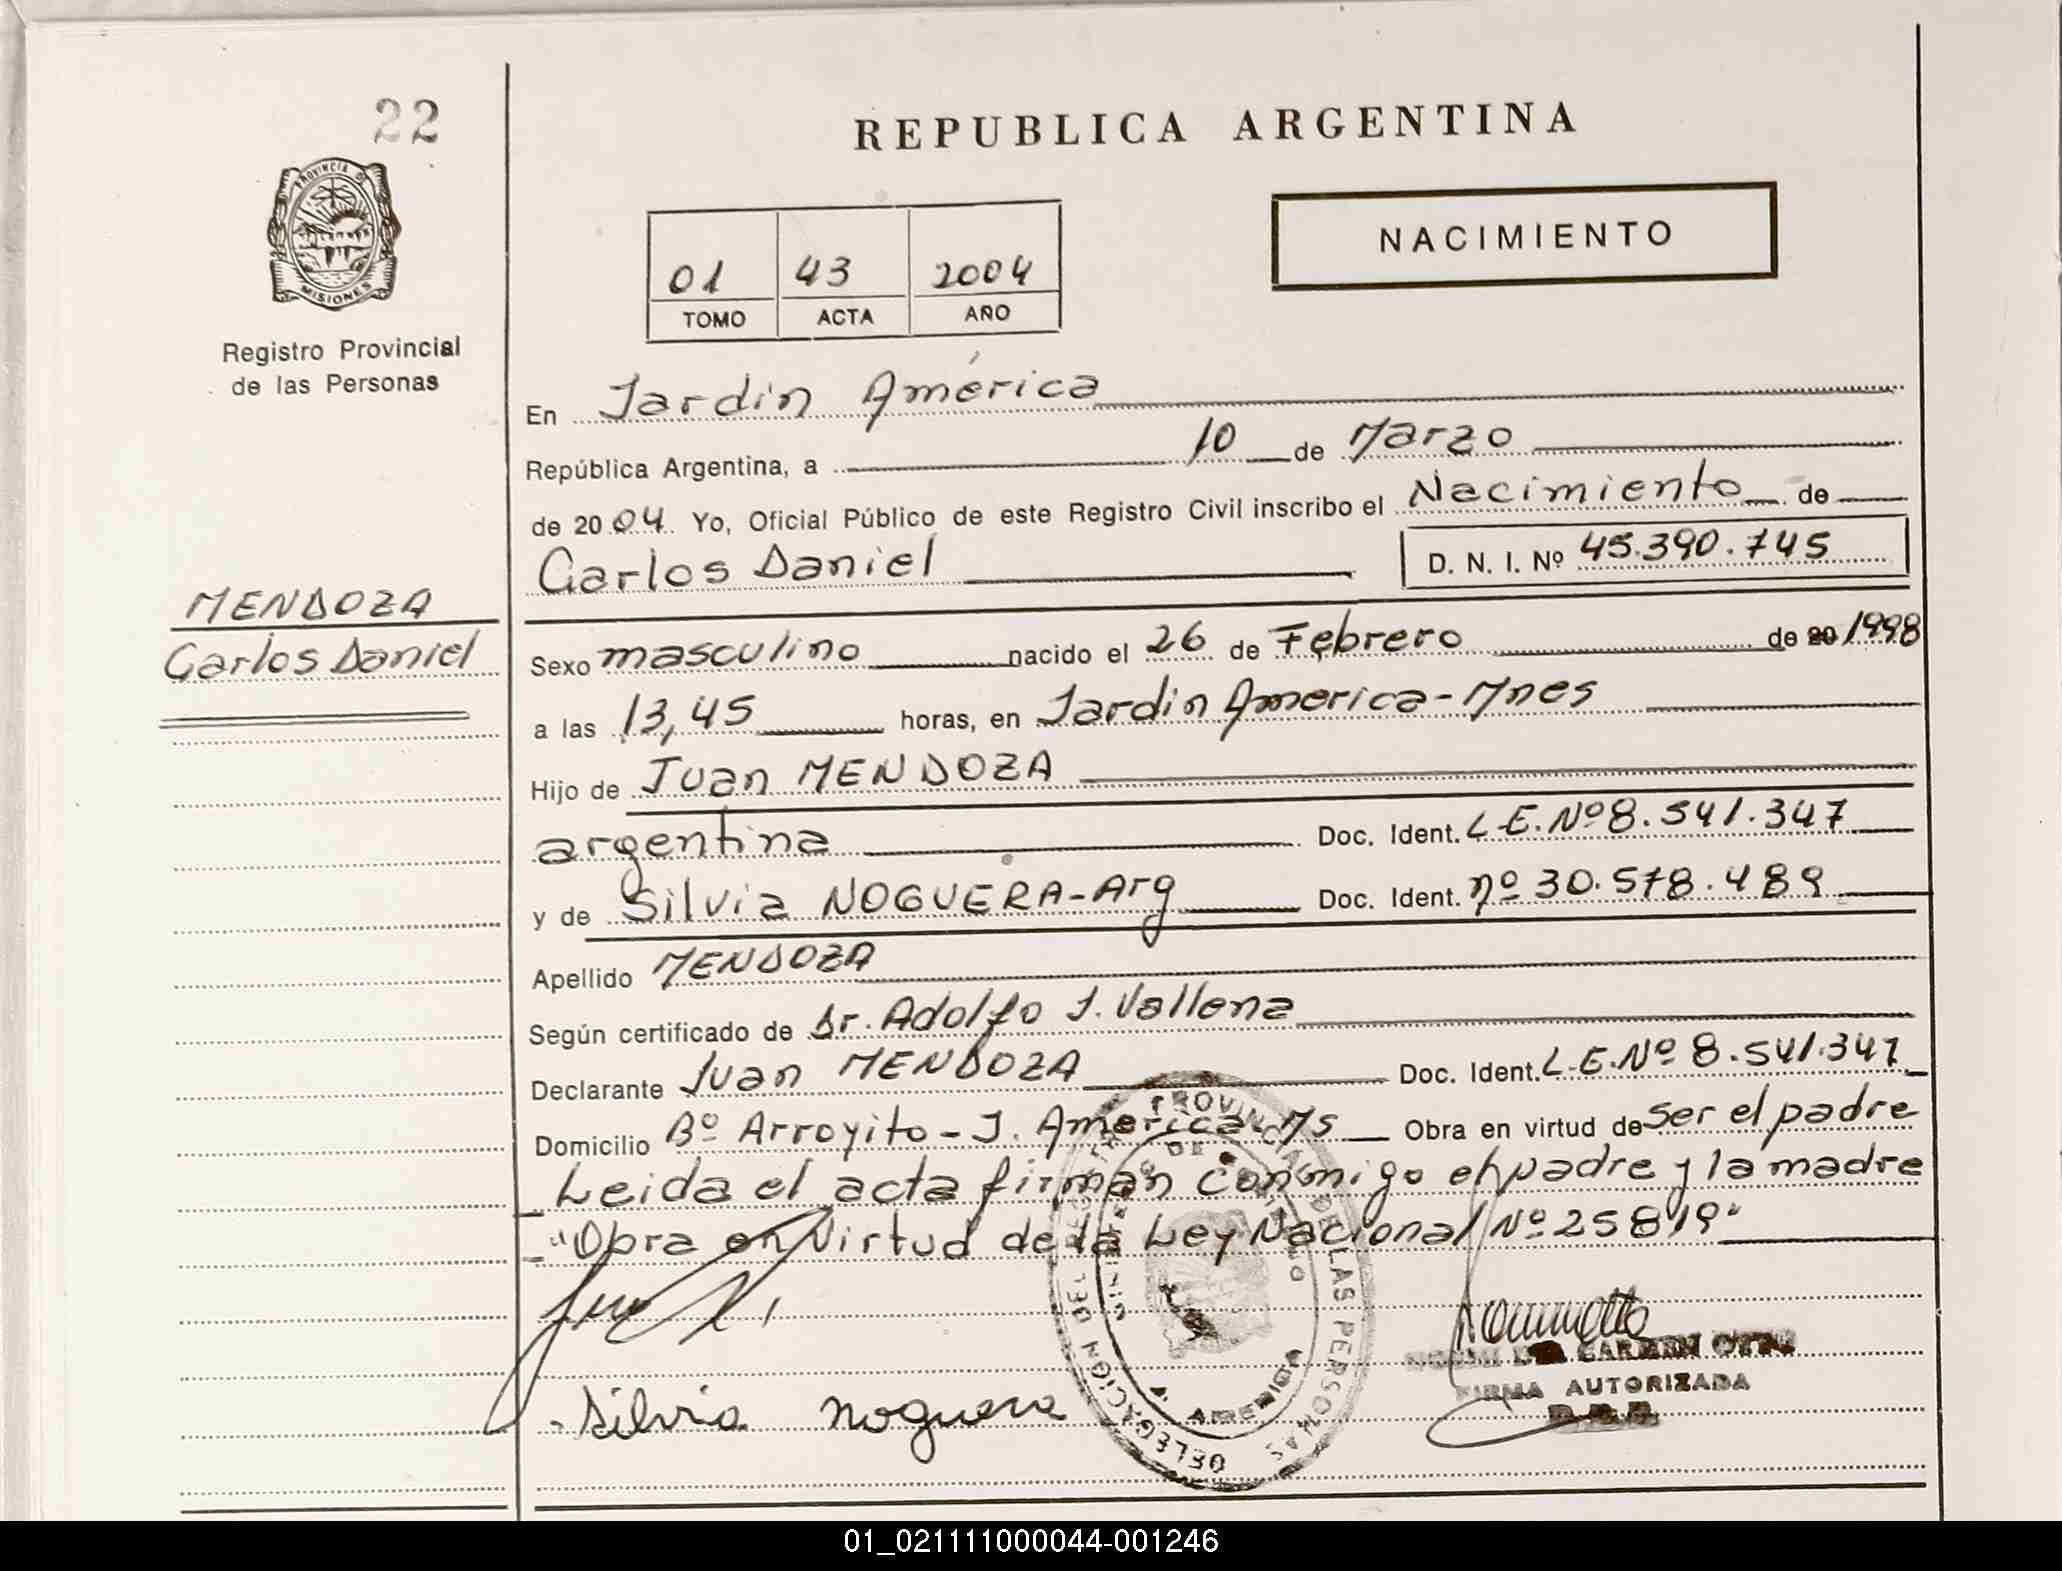 22
PROVINCIA DE
MISIONES
Registro Provincial
de las Personas
MENDOZA
Carlos Daniel
REPUBLICA ARGENTINA
NACIMIENTO
01 43 2004
TOMO ACTA AÑO
En Jardin América
República Argentina, a 10 de Marzo
de 2004 Yo, Oficial Público de este Registro Civil inscribo el Nacimiento de
Carlos Daniel D. N. I. Nº 45.390.745
Sexo masculino nacido el 26 de Febrero de 20 1998
a las 13,45 horas, en Jardin America - Mnes
Hijo de Juan MENDOZA
argentina Doc. Ident. L.E. Nº 8.541.347
y de Silvia NOGUERA - Arg Doc. Ident. nº 30.578.489
Apellido MENDOZA
Según certificado de Dr. Adolfo J. Vallena
Declarante Juan MENDOZA Doc. Ident. L.E. Nº 8.541.347
Domicilio Bº Arroyito - J. America. Ms Obra en virtud de ser el padre
Leida el acta firman conmigo el padre y la madre
"Obra en Virtud de la Ley Nacional Nº 25819"
Silvia noguera
DELEGACION DEL REGISTRO PROVINCIAL DE LAS PERSONAS
DEL CARMEN
FIRMA AUTORIZADA
01_021111000044-001246